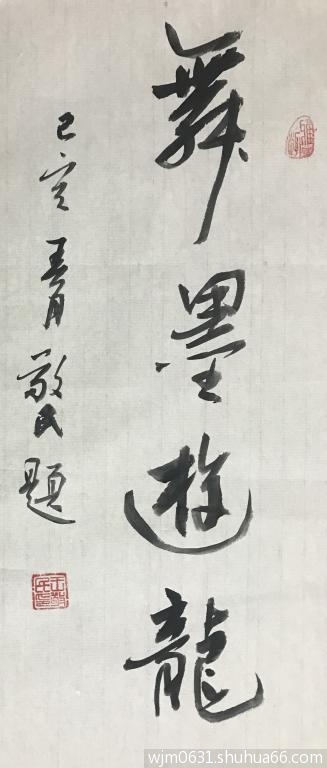 舞墨遊龍
己亥春月敬民題
wjm0631.shuhua66.com